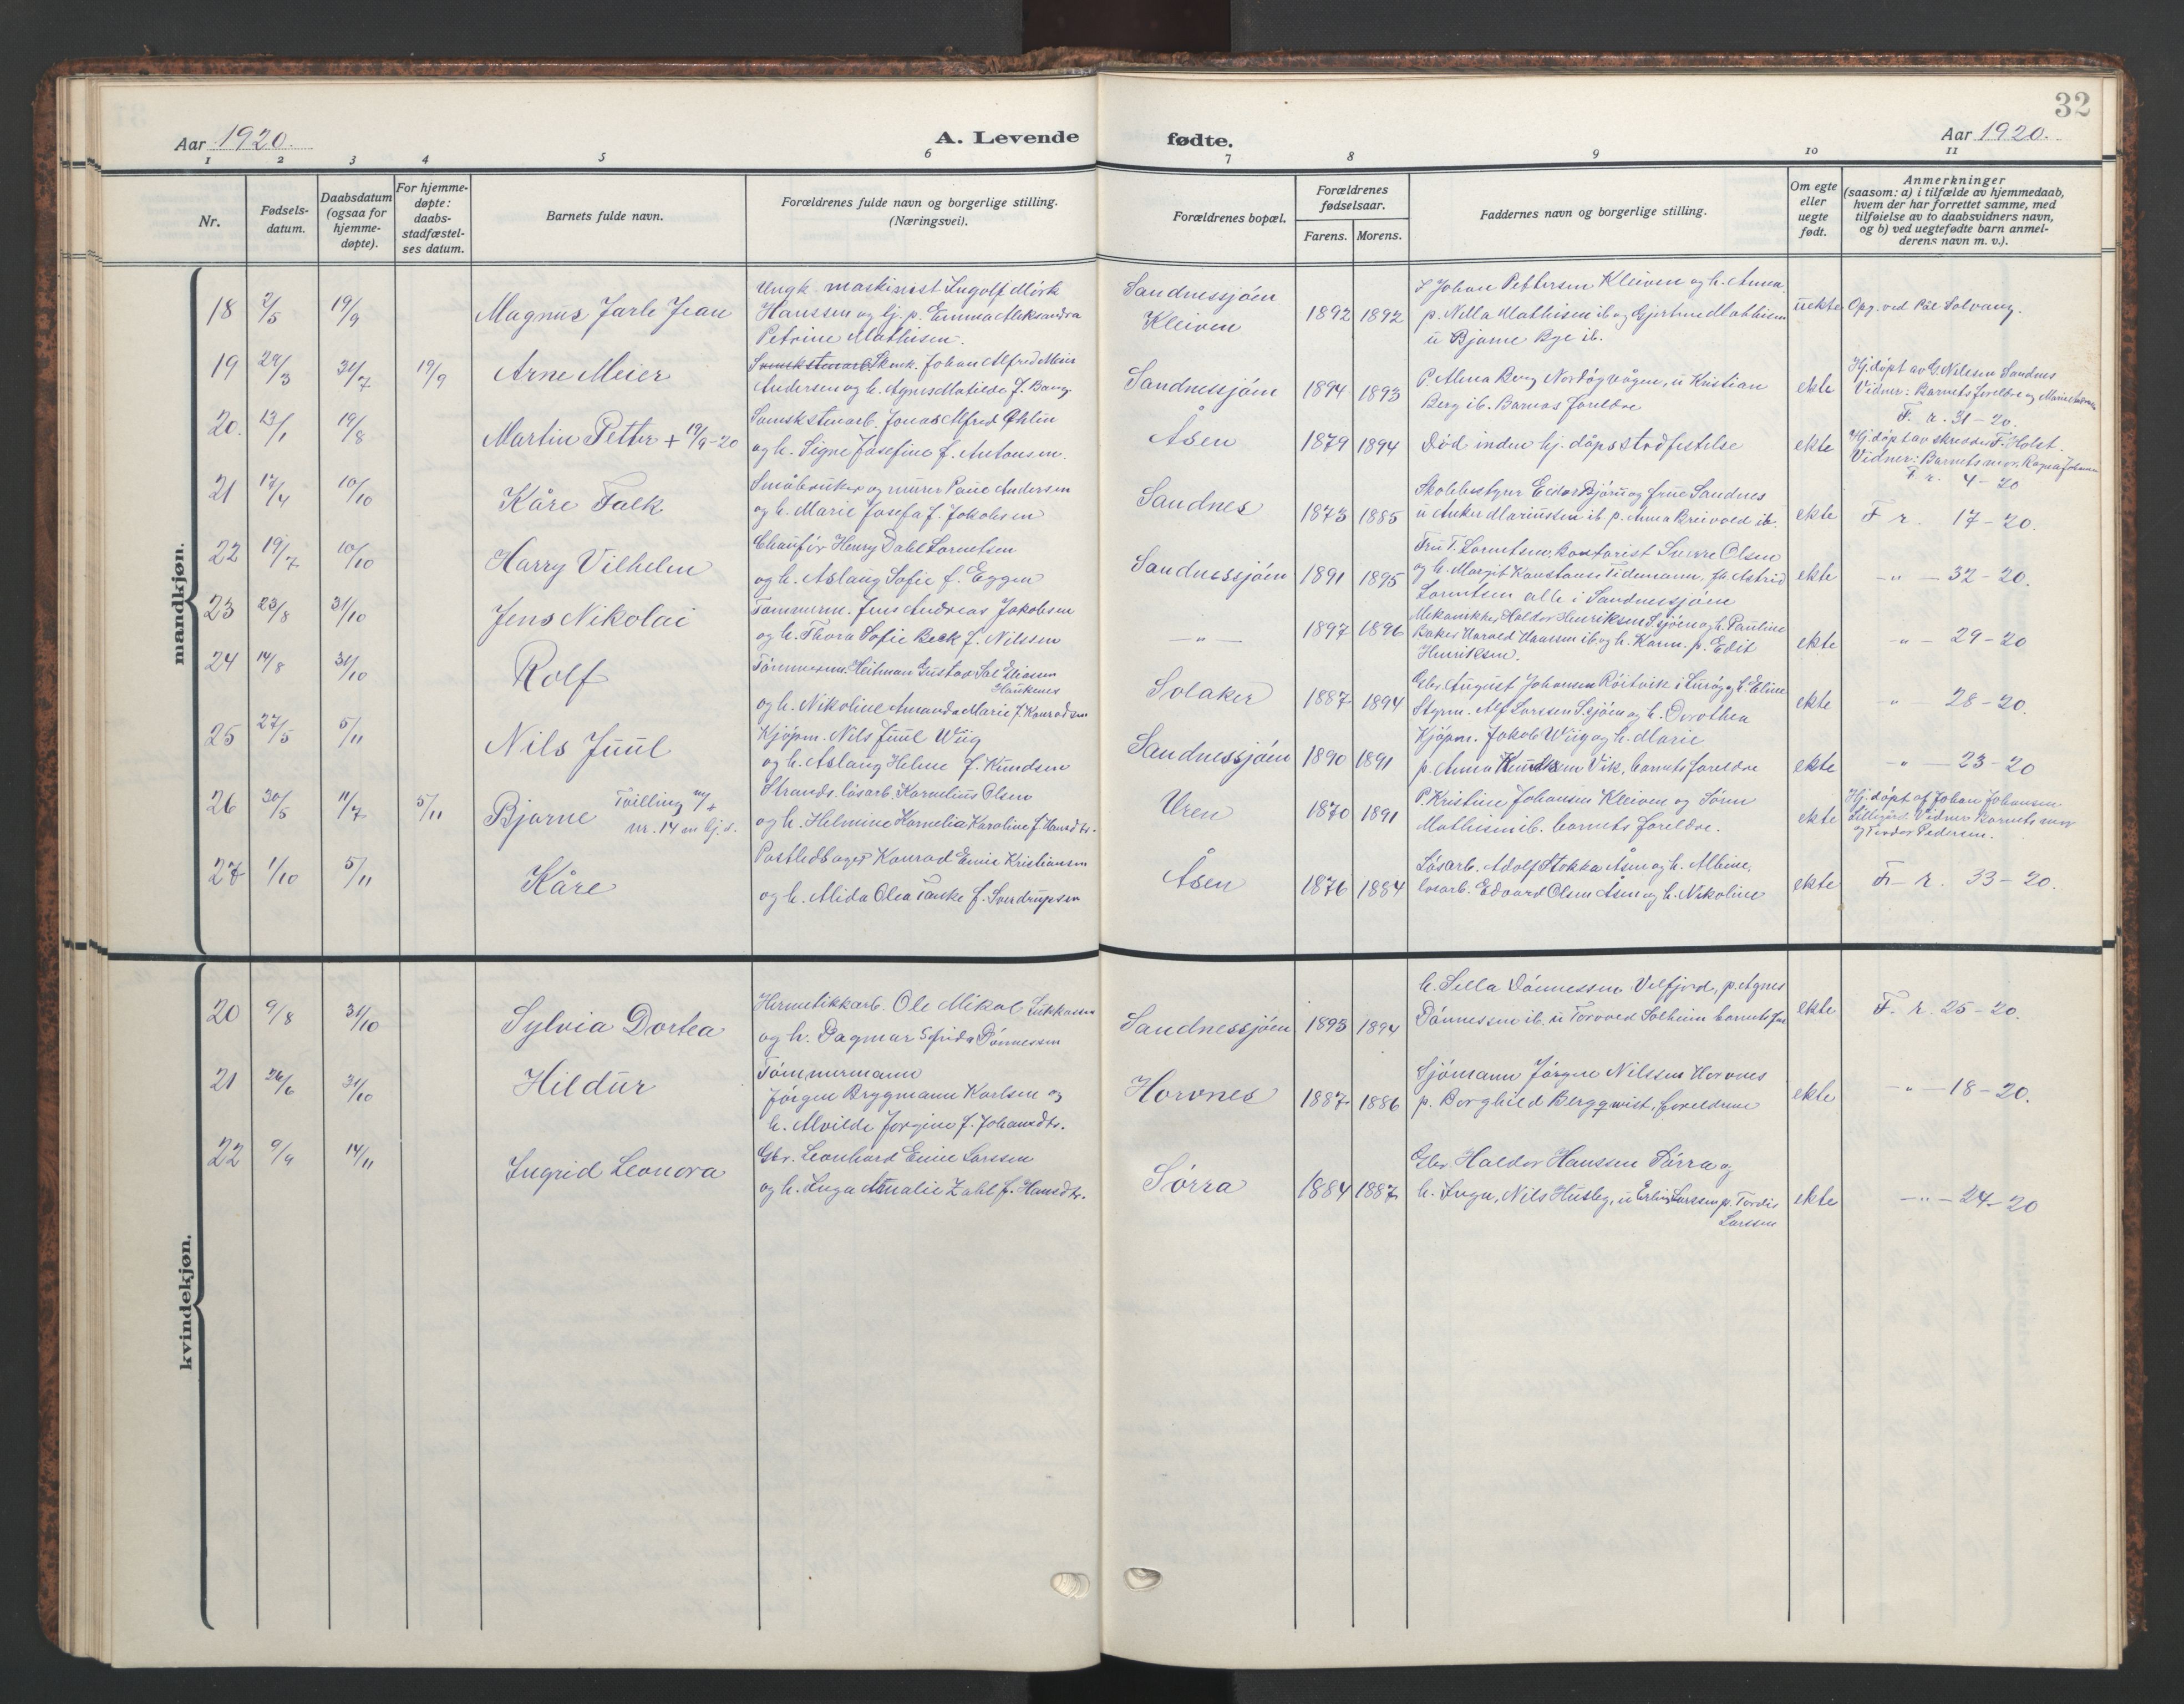 32
Aar 1920.
A. Levende
fødte.
Aar 1920.
1 2 3 4 5 6 7 8 9 10 11
Nr.
Fødsels-
datum.
Daabsdatum
(ogsaa for
hjemme-
døpte).
For hjemme-
døpte:
daabs-
stadfæstel-
ses datum.
Barnets fulde navn.
Forældrenes fulde navn og borgerlige stilling.
(Næringsvei).
Forældrenes bopæl.
Forældrenes
fødselsaar.
Farens. Morens.
Faddernes navn og borgerlige stilling.
Om egte
eller
uegte
født.
Anmerkninger
(saasom: a) i tilfælde av hjemmedaab,
hvem der har forrettet samme, med
tilføielse av to daabsvidners navn,
og b) ved uegtefødte barn anmel-
derens navn m. v.).
mandkjøn.
18 2/5 19/9 Magnus Jarle Jean
Ungk. maskinist Ingolf Mörk
Hanssen og pj. p. Emma Aleksandra
Petrine Mathisen.
Sandnessjöen
Kleiven
1892 1892
Johan Pettersen Kleiven og h. Anna,
p. Nella Mathisen ib. og Gjertine Mathisen
u Bjarne Bye ib.
uekte
Opg. ved Pål Solvang.
19 29/3 31/7 19/9 Arne Meier
Johan Alfred Meier
Andersen og h. Agnes Matilde f. Berg
Sandnessjöen
1894 1893
P. Alma Berg Nordögvågen, u Kristian
Berg ib. Barnas foreldre
ekte
Hj.döpt av G. Nilsen Sandnes
Vidner: Barnets foreldre og Marie Andersen
F. r. 31-20.
20. 13/1 19/8 Martin Petter + 19/9-20
Svensk stenarb. Jonas Alfred Öhlin
og h. Signe Josefine f. Antonsen.
Åsen
1879 1894
Död inden hj. dåpsstadfestelse
ekte
Hj.döpt av skredder F. Holst.
Vidner: Barnets mor, Ragna Johansen
F. r. 4-20
21 17/4 10/10 Kåre Falk
Småbruker og murer Paul Andersen
og h. Marie Josefa f. Jakobsen
Sandnes
1873 1885
Skolebestyrer Eidar Björu og frue Sandnes
u Anker Mariussen ib. p. Anna Breivold ib.
ekte
F r. 17-20.
22 19/7 10/10 Harry Vilhelm
Chauför Henry Dahl Lorentsen
og h. Aslaug Sofie f. Eggen
Sandnessjöen
1891 1895
Fru T. Lorentsen, Kontorist Sverre Olsen
og h. Margit Konstanse Tidemann, frk Astrid
Lorentsen alle i Sandnessjöen
ekte
-"- 32-20.
23 23/8 31/10 Jens Nikolai
Tömmerm. Jens Andreas Jakobsen
og h. Thora Sofie Beck f. Nilssen
-"-
1897 1896
Mekanikker Haldor Henriksen Ssjöen og h. Pauline
Baker Harald Hansen ib. og h. Karen. p. Edit
Henriksen.
ekte
-"- 29-20
24 14/8 31/10 Rolf
Tömmerm. Heitman Gustav Sal Eliassen
Haukenes
og h. Nikoline Amanda Marie f. Konradsen
Solaker
1887 1894
Gbr. August Johansen Röitvik i Luröy og h. Eline
Styrm. Alf Larssen Ssjöen og h. Dorothea
ekte
-"- 28-20.
25 27/5 5/11 Nils Juul
Kjöpm. Nils Juul Wiig
og h. Aslaug Helene f. Knudsen
Sandnessjöen
1890 1891
Kjöpm. Jakob Wiig og h. Marie
p. Anna Knudsen Vik, barnets foreldre
ekte
-"- 23-20
26 30/5 11/7 5/11 Bjarne Tvilling m/
nr. 14
Strands. lösarb. Kornelius Olsen
og h. Helmine Kornelia Karoline f. Hansdtr.
Uren
1870 1891
P. Kristine Johansen Kleiven og Sönn
Mathisen ib. barnets foreldre.
ekte
Hj. döpt af Johan Johansen
Vidner Barnets mor
og Teodor Pedersen.
27 1/10 5/11 Kåre
Postledsager Konrad Emil Kristiansen
og h. Alida Olea Tanke f. Sverdrupsen
Åsen
1876 1884
Lösarb. Adolf Stokka Åsen og h. Albine,
lösarb. Edvard Olsen Åsen og h. Nikoline
ekte
F. r. 33-20.
kvindekjøn.
20 9/8 31/10 Sylvia Dortea
Hermetikkarb. Ole Mikal Lukkassen
og h. Dagmar Sofrida Dönnessen
Sandnessjöen
1893 1894
h. Sella Dönnessen Velfjord, p. Agnes
Dönnessen ib. u Torvald Solheim barnets far
ekte
F. r. 25-20.
21 26/6 31/10 Hildur
Tömmermann
Jörgen Brygmann Karlsen og
h. Alvilde Jörgine f. Johansdtr.
Horvnes
1887 1886
Sjömann Jörgen Nilssen Horvnes
p. Borghild Bergqwist, foreldrene
ekte
-"- 18-20.
22 9/9 14/11 Ingrid Leonora
Gbr. Leonhard Emil Larssen
og h. Inga Amalie Zahl f. Hansdtr.
Sörra
1884 1887
Gbr. Haldor Hanssen Sörra og
h. Inga, Nils Husby, u Erling Larssen p. Tordis
Larssen
ekte
-"- 24-20